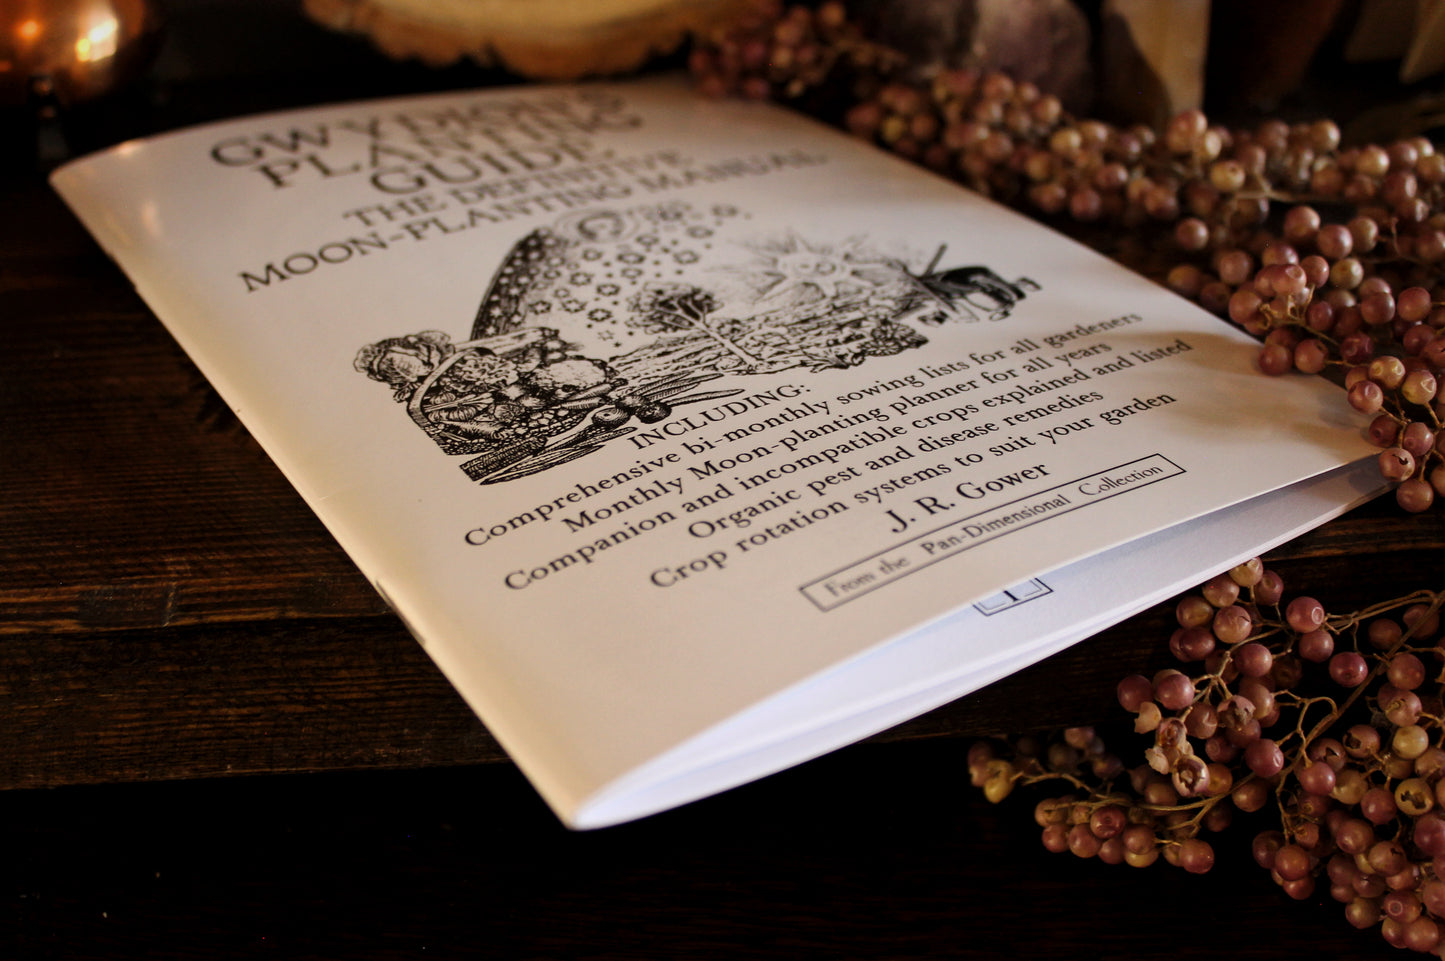 GWYDION'S
PLANTING
GUIDE
THE DEFINITIVE
MOON-PLANTING MANUAL
INCLUDING:
Comprehensive bi-monthly sowing lists for all gardeners
Monthly Moon-planting planner for all years
Companion and incompatible crops explained and listed
Organic pest and disease remedies
Crop rotation systems to suit your garden
J. R. Gower
From the Pan-Dimensional Collection